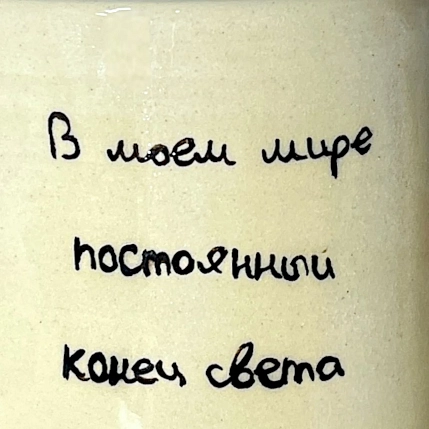 В моем мире
постоянный
конец света